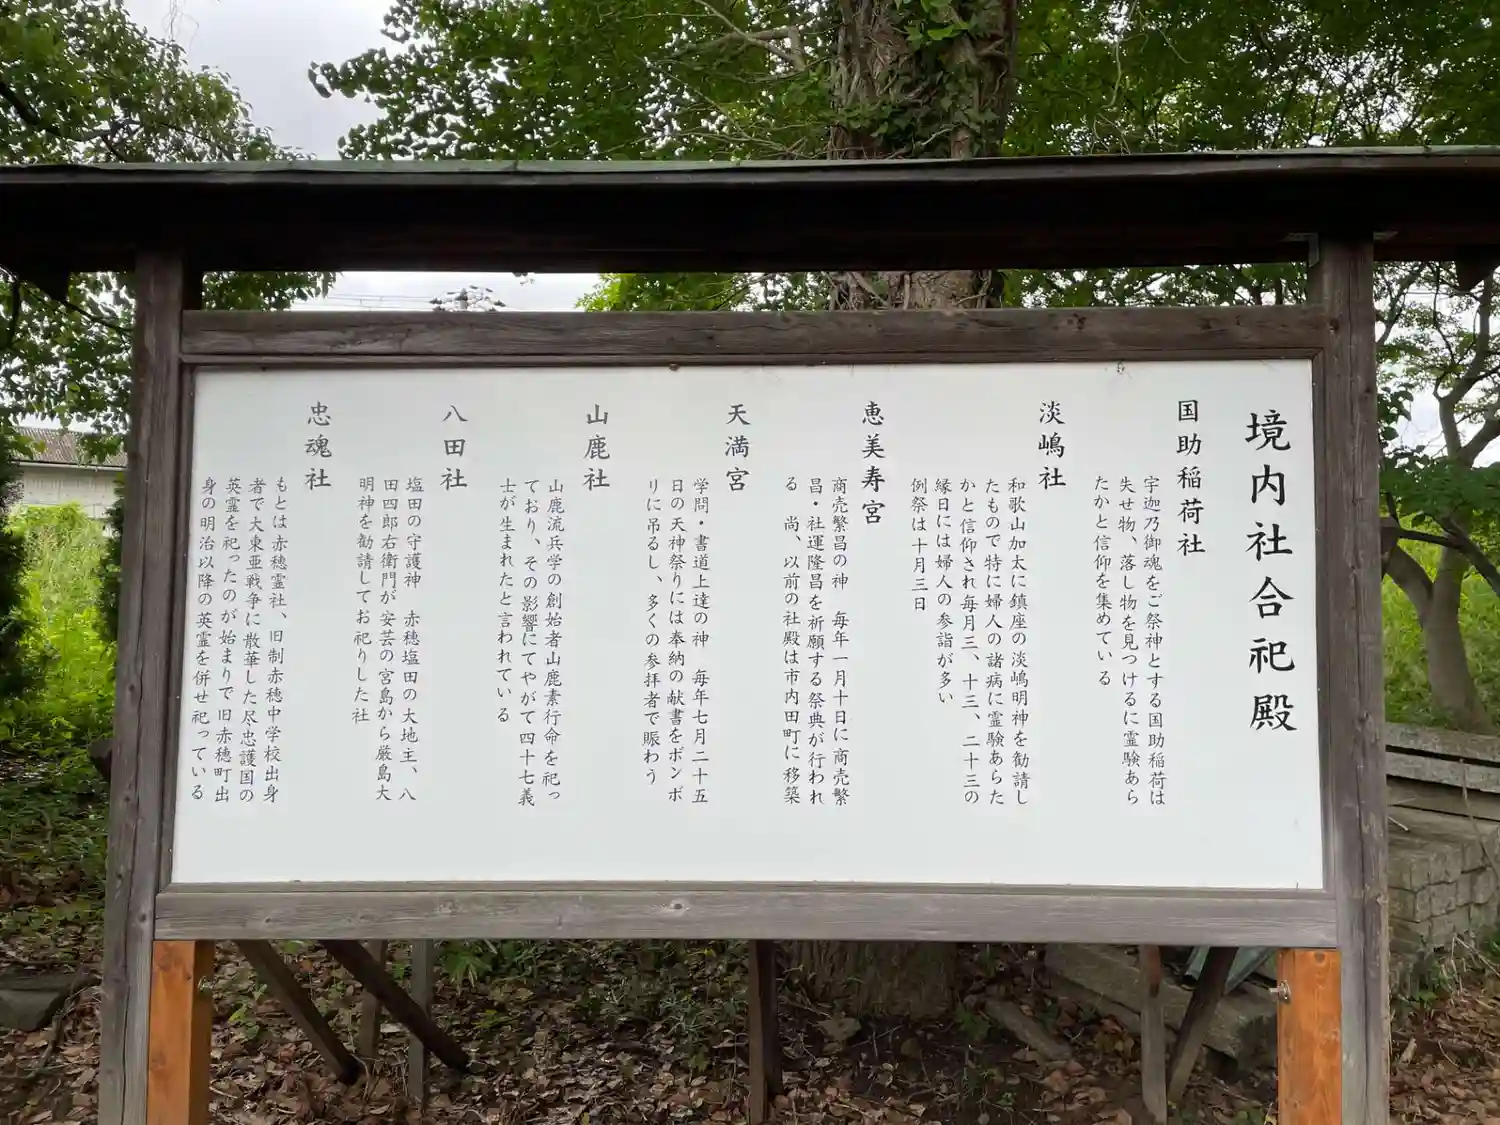 境内社合祀殿
国助稲荷社
宇迦乃御魂をご祭神とする国助稲荷は
失せ物、落し物を見つけるに霊験あら
たかと信仰を集めている
淡嶋社
和歌山加太に鎮座の淡嶋明神を勧請し
たもので特に婦人の諸病に霊験あらた
かと信仰され毎月三、十三、二十三の
縁日には婦人の参詣が多い
例祭は十月三日
恵美寿宮
商売繁昌の神　毎年一月十日に商売繁
昌・社運隆昌を祈願する祭典が行われ
る　尚、以前の社殿は市内田町に移築
天満宮
学問・書道上達の神　毎年七月二十五
日の天神祭りには奉納の献書をボンボ
りに吊るし、多くの参拝者で賑わう
山鹿社
山鹿流兵学の創始者山鹿素行命を祀っ
ており、その影響にてやがて四十七義
士が生まれたと言われている
八田社
塩田の守護神　赤穂塩田の大地主、八
田四郎右衛門が安芸の宮島から厳島大
明神を勧請してお祀りした社
忠魂社
もとは赤穂霊社、旧制赤穂中学校出身
者で大東亜戦争に散華した尽忠護国の
英霊を祀ったのが始まりで旧赤穂町出
身の明治以降の英霊を併せ祀っている